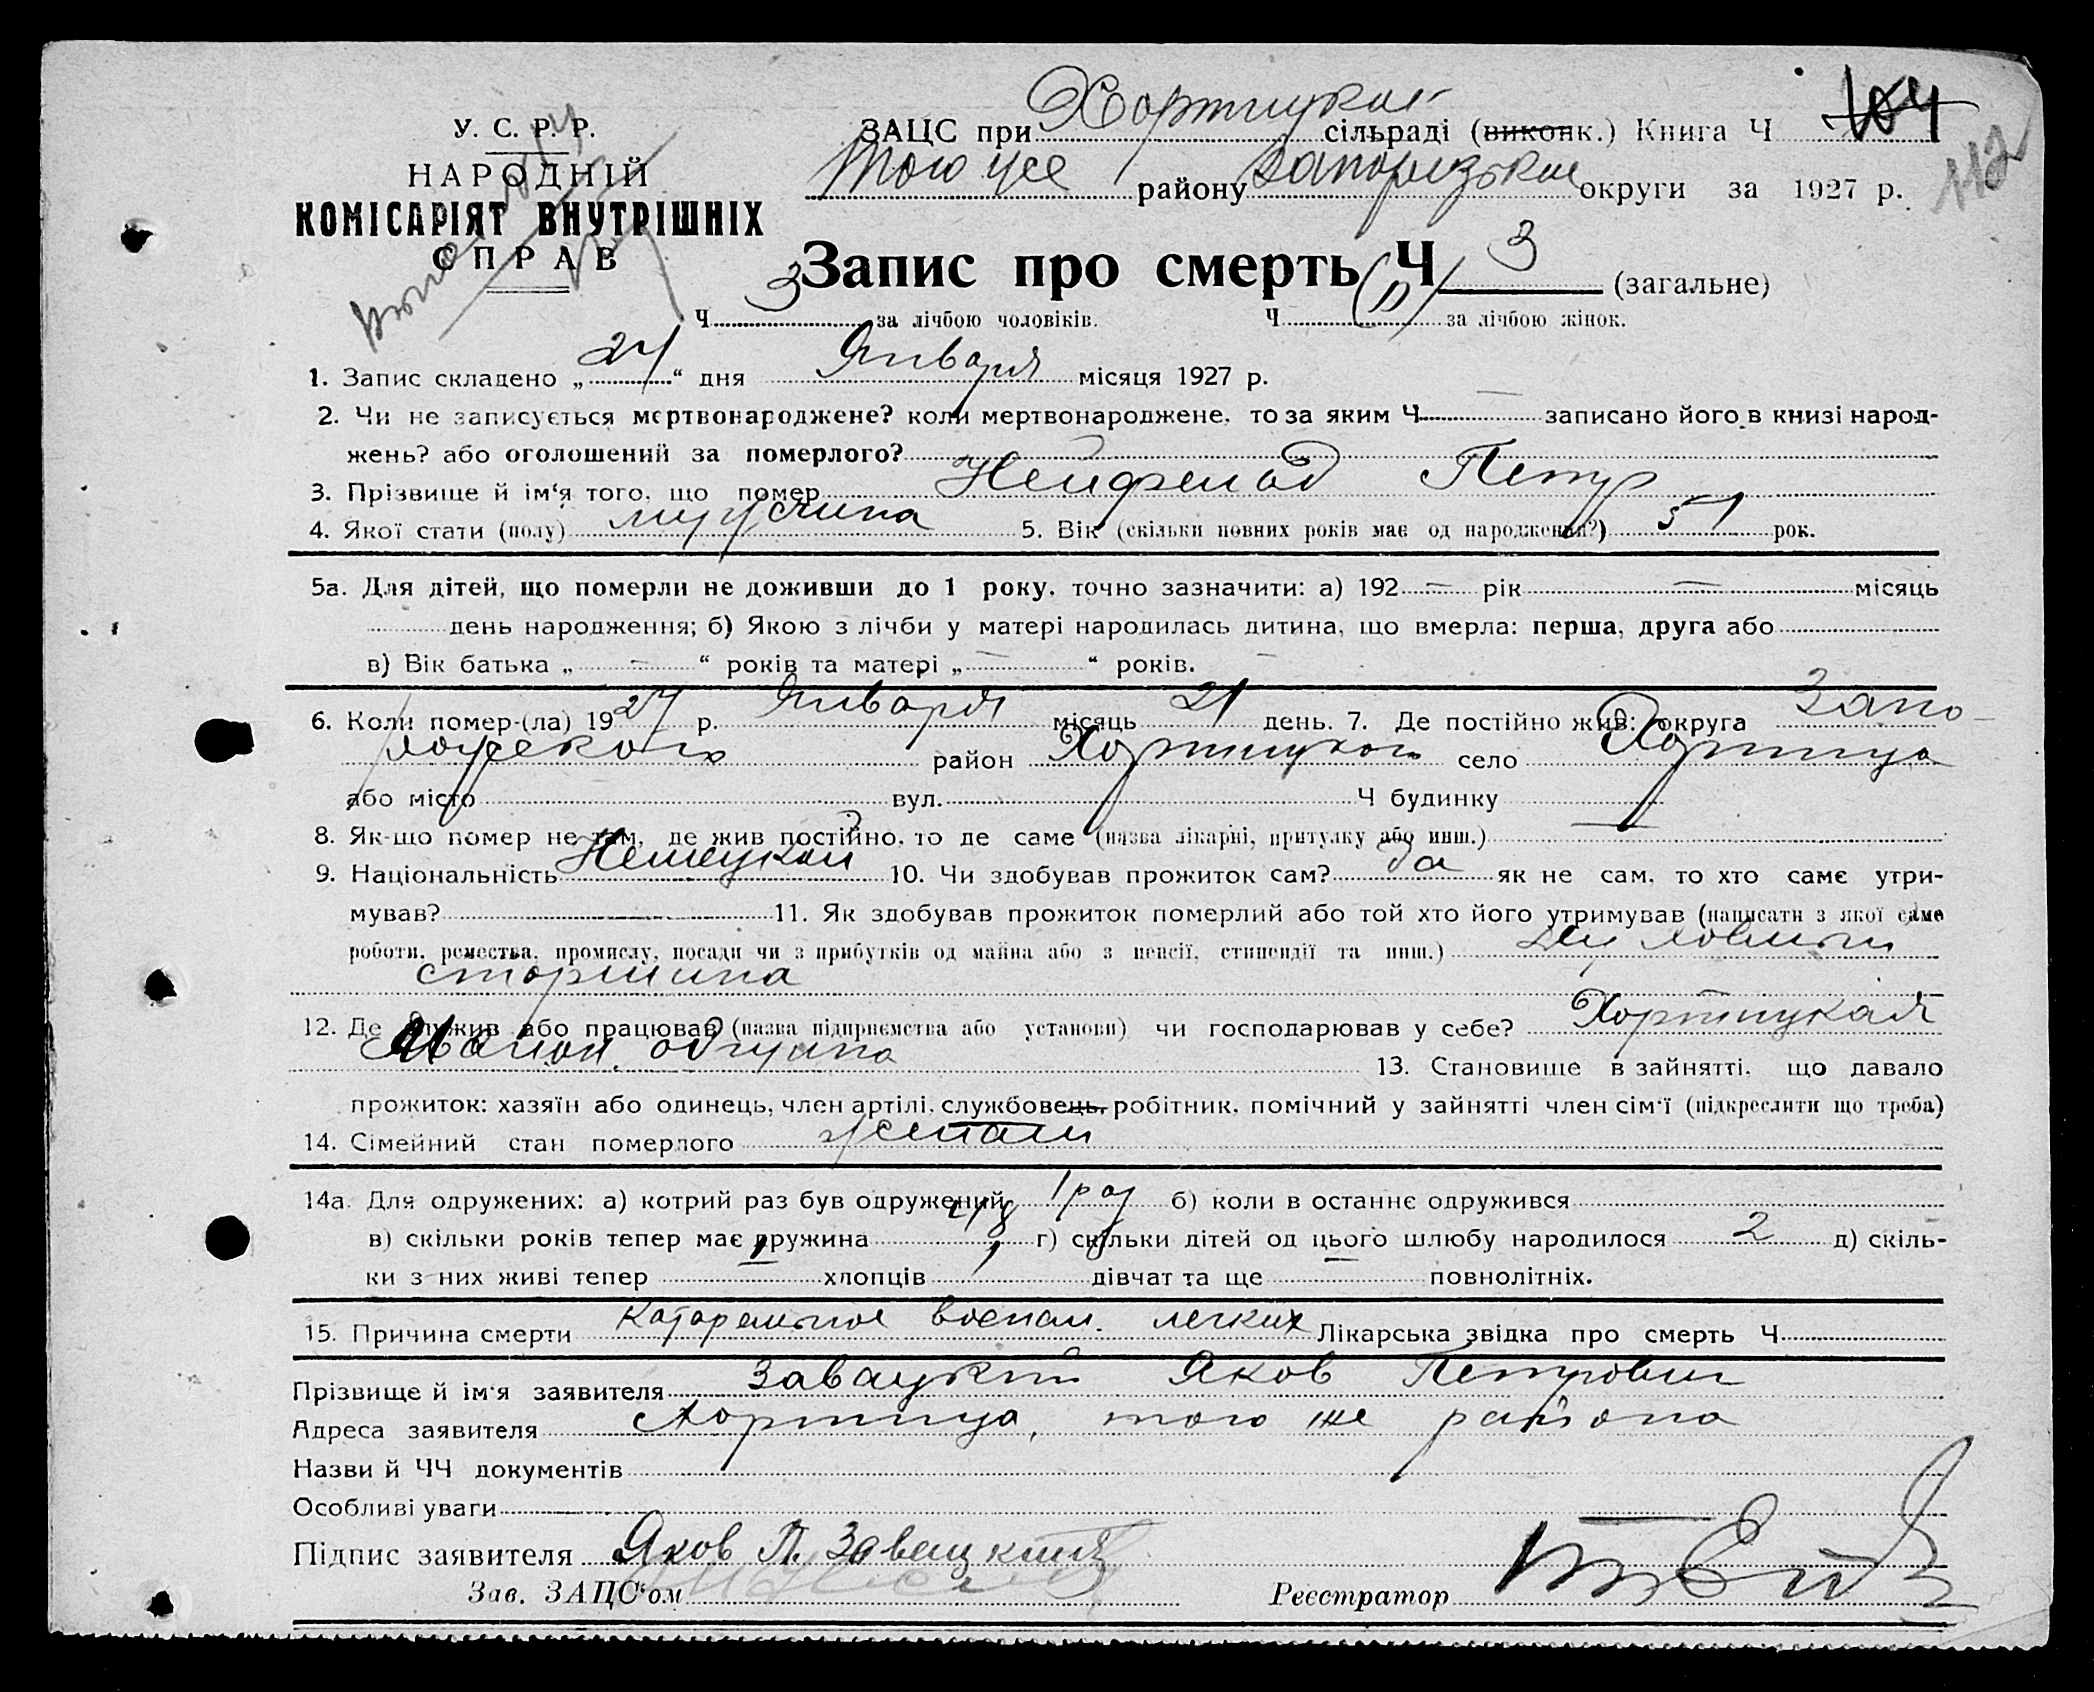 У. С. Р. Р.
НАРОДНІЙ
КОМІСАРІЯТ ВНУТРІШНІХ
СПРАВ
104
112
ЗАЦС при Хортицкой сільраді (виконк.) Книга Ч
того же району Запорізької округи за 1927 р.
Запис про смерть Ч 3 (загальне)
Ч 3 за лічбою чоловіків. Ч за лічбою жінок.
1. Запис складено „ 24 “ дня Января місяця 1927 р.
2. Чи не записується мертвонароджене? коли мертвонароджене, то за яким Ч — записано його в книзі народ-
жень? або оголошений за померлого?
3. Прізвище й ім‘я того, що помер Нейфельд Петр
4. Якої стати (полу) мужчина 5. Вік (скільки повних років має од народження?) 51 рок.
5а. Для дітей, що померли не доживши до 1 року, точно зазначити: а) 192 — рік — місяць
день народження; б) Якою з лічби у матері народилась дитина, що вмерла: перша, друга або
в) Вік батька „ — “ років та матері „ — “ років.
6. Коли помер-(ла) 1927 р. Января місяць 21 день. 7. Де постійно жив: округа Запо-
рожского район Хортицкого село Хортица
або місто вул. Ч будинку
8. Як-що помер не там, де жив постійно, то де саме (назва лікарні, притулку або инш.) —
9. Національність Немецкой 10. Чи здобував прожиток сам? да як не сам, то хто саме утри-
мував? — 11. Як здобував прожиток померлий або той хто його утримував (написати з якої саме
роботи, ремества, промислу, посади чи з прибутків од майна або з пенсії, стипендії та инш.)
12. Де служив або працював (назва підприємства або установи) чи господарював у себе? Хортицкая
13. Становище в зайнятті, що давало
прожиток: хазяїн або одинець, член артілі, службовець, робітник, помічний у зайнятті член сім‘ї (підкреслити що треба)
14. Сімейний стан померлого женат
14а. Для одружених: а) котрий раз був одружений 1 раз б) коли в останнє одружився
в) скільки років тепер має дружина 48 г) скільки дітей од цього шлюбу народилося 2 д) скіль-
ки з них живі тепер 1 хлопців 1 дівчат та ще — повнолітніх.
15. Причина смерти Катаральное воспал. легких Лікарська звідка про смерть Ч
Прізвище й ім‘я заявителя Завацкий Яков Петрович
Адреса заявителя Хортица, того же района
Назви й ЧЧ документів
Особливі уваги
Підпис заявителя Яков П. Завацкий
Зав. ЗАЦС‘ом Реєстратор